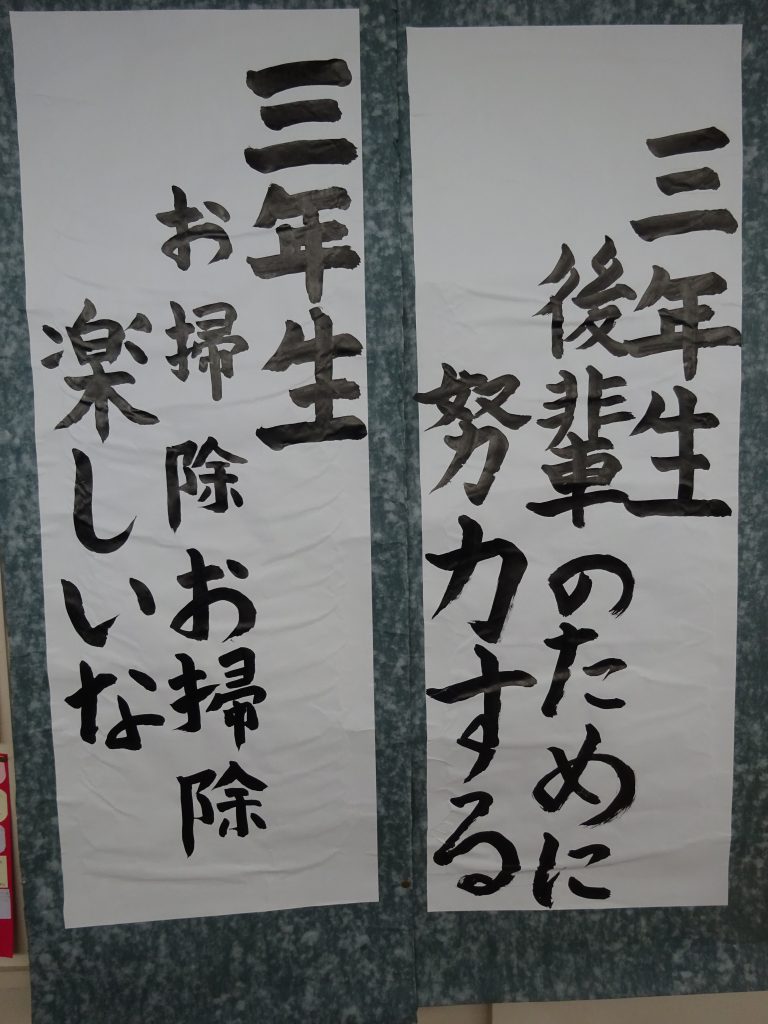 三年生
後輩のために
努力する
三年生
お掃除お掃除
楽しいな